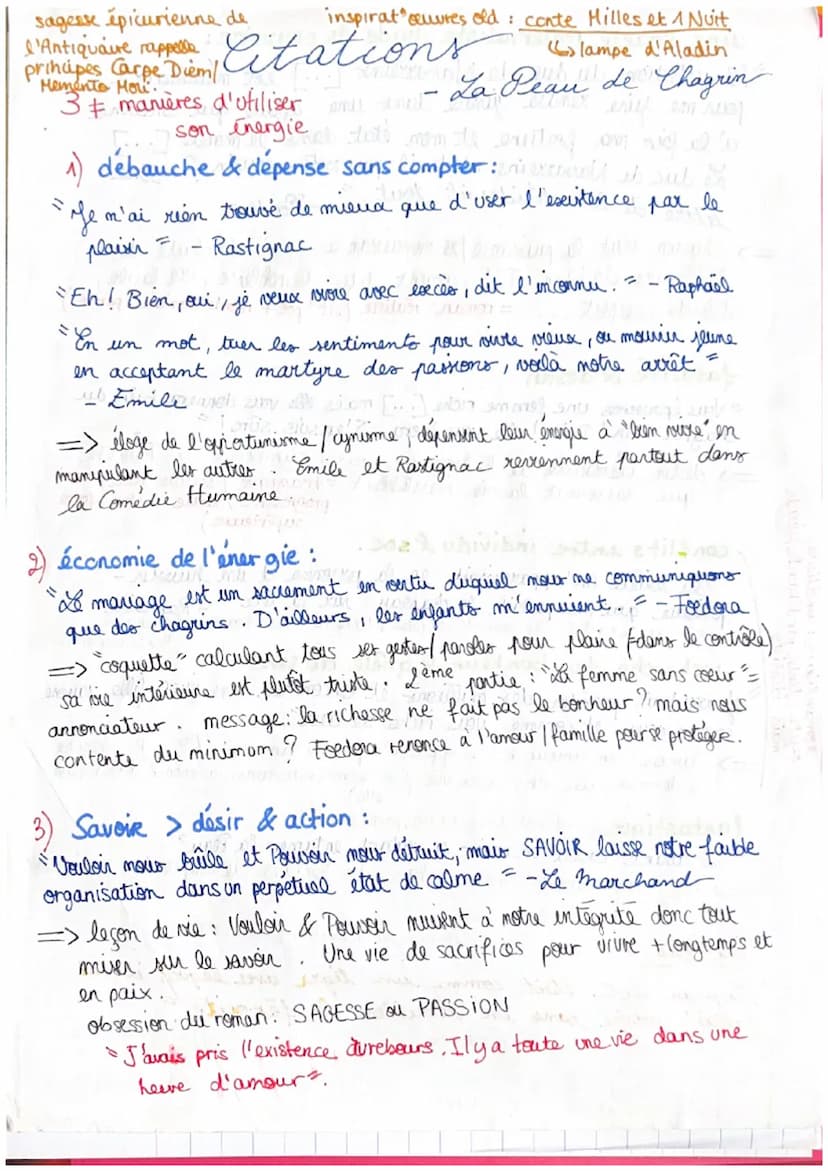 sagesse épicurienne de
l'Antiquité rappelle
principes Carpe Diem/
Memento Mori.
inspirat° œuvres old : conte Milles et 1 Nuit
↳ lampe d'Aladin
Citations
- La Peau de Chagrin
3 ≠ manières d'utiliser
son énergie
1) débauche & dépense sans compter :
"Je m'ai rien trouvé de mieux que d'user l'existence par le
plaisir" - Rastignac
"Eh! Bien, oui, je veux vivre avec excès, dit l'inconnu." - Raphaël
"En un mot, tuer les sentiments pour vivre vieux, ou mourir jeune
en acceptant le martyre des passions, voilà notre arrêt"
- Emile
=> éloge de l'opportunisme/cynisme, dépensent leur énergie à "bien vivre" en
manipulant les autres. Emile et Rastignac reviennent partout dans
la Comédie Humaine.
2) économie de l'énergie :
"Le mariage est un sacrement en vertu duquel nous ne communiquons
que des chagrins. D'ailleurs, les enfants m'ennuient." - Foedora
=> "coquette" calculant tous ses gestes/paroles pour plaire (dans le contrôle)
sa vie intérieure est plutôt triste. 2ème partie : "La femme sans coeur" =
annonciateur. message: la richesse ne fait pas le bonheur ? mais nous
contente du minimum ? Foedora renonce à l'amour/famille pour se protéger.
3) Savoir > désir & action :
"Vouloir nous brûle et Pouvoir nous détruit; mais SAVOIR laisse notre faible
organisation dans un perpétuel état de calme" - Le Marchand
=> leçon de vie : Vouloir & Pouvoir nuisent à notre intégrité donc tout
miser sur le savoir. Une vie de sacrifices pour vivre + longtemps et
en paix.
obsession du roman: SAGESSE ou PASSION
"J'avais pris l'existence à rebours. Il y a toute une vie dans une
heure d'amour".